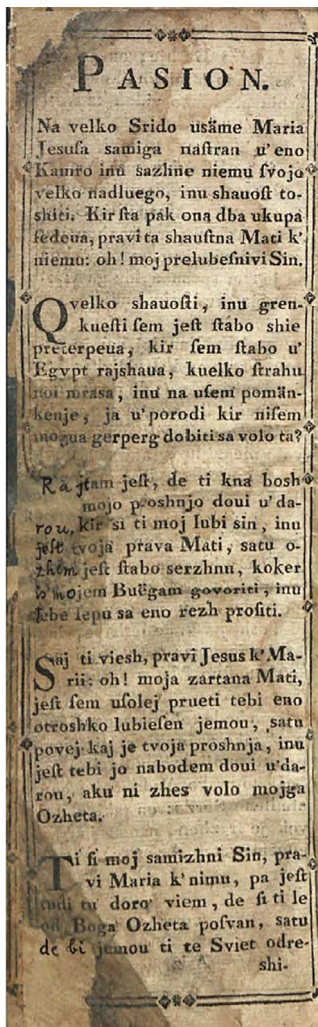 PASION.
Na velko Srido usäme Maria
Jesuſa samiga naſtran u'eno
Kamro inu sazhne niemu ſvojo
velko nadluego, inu shauoſt to-
shiti. Kir ſta pak ona dba ukupa
ſedeua, pravi ta shauſtna Mati k'
niemu: oh! moj prelubeſnivi Sin.
Q velko shauoſti, inu gren-
kueſti ſem jeſt ſtabo shie
preterpeua, kir ſem ſtabo u'
Egypt rajshaua, kuelko ſtrahu
noi mrasa, inu na uſem pomän-
kenje, ja u'porodi kir niſem
mogua gerperg dobiti sa volo ta?
Rajtam jeſt, de ti kna bosh
mojo proshnjo doui u'da-
rou, kir si ti moj lubi sin, inu
jeſt tvoja prava Mati, satu o-
zhem jeſt ſtabo serzhnu, koker
s'mojem Buëgam govoriti, inu
tebe lepu sa eno rezh proſiti.
Saj ti viesh, pravi Jesus k'Ma-
rii: oh! moja zartana Mati,
jeſt ſem uſolej prueti tebi eno
otroshko lubieſen jemou, satu
povej kaj je tvoja proshnja, inu
jeſt tebi jo nabodem doui u'da-
rou, aku ni zhes volo mojga
Ozheta.
Ti ſi moj samizhni Sin, pra-
vi Maria k'nimu, pa jeſt
tudi tu doro viem, de ſi ti le
od Boga Ozheta poſvan, satu
de bi jemou ti te Sviet odre-
shi-